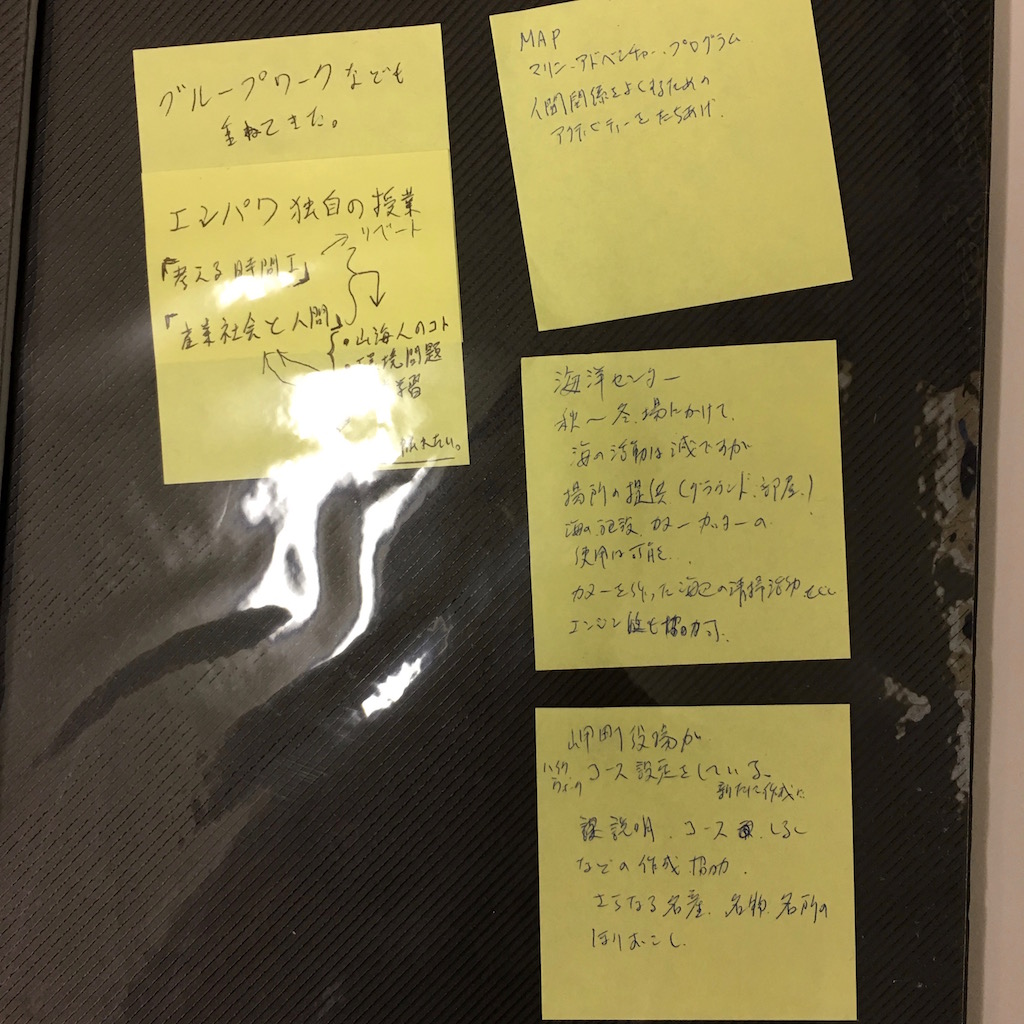 グループワークなども
重ねてきた。
エンパワ独自の授業
リベート
「考える時間I」
「産業社会と人間」
・山海人のコト
・環境問題
習
MAP
マリン、アドベンチャー、プログラム
人間関係をよくするための
アクティビティーをたちあげ
海洋センター
秋〜冬、場にかけて、
海の活動は減ですが
場所の提供(グラウンド、部屋、)
海の施設、カヌー カッターの
使用は可能、
カヌーを作った海辺の清掃活動 etc
エンジン 協力可、
岬町役場が
ハイク コース設定をしている、
新たに作成に
説明、コース しるし
などの作成協力、
さらなる名産、名物、名所の
ほりおこし